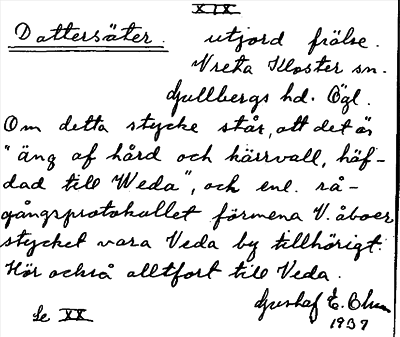 XIX
Dattersäter. utjord frälse.
Vreta Kloster sn.
Gullbergs hd. Ögl.
Om detta stycke står, att det är
"äng af hård och kärrvall, häf-
dad till Weda", och enl. rå-
gångsprotokollet förmena V. åboer
stycket vara Veda by tillhörigt.
Hör också alltfort till Veda.
Gustaf E. Olsson
Se XX 1937